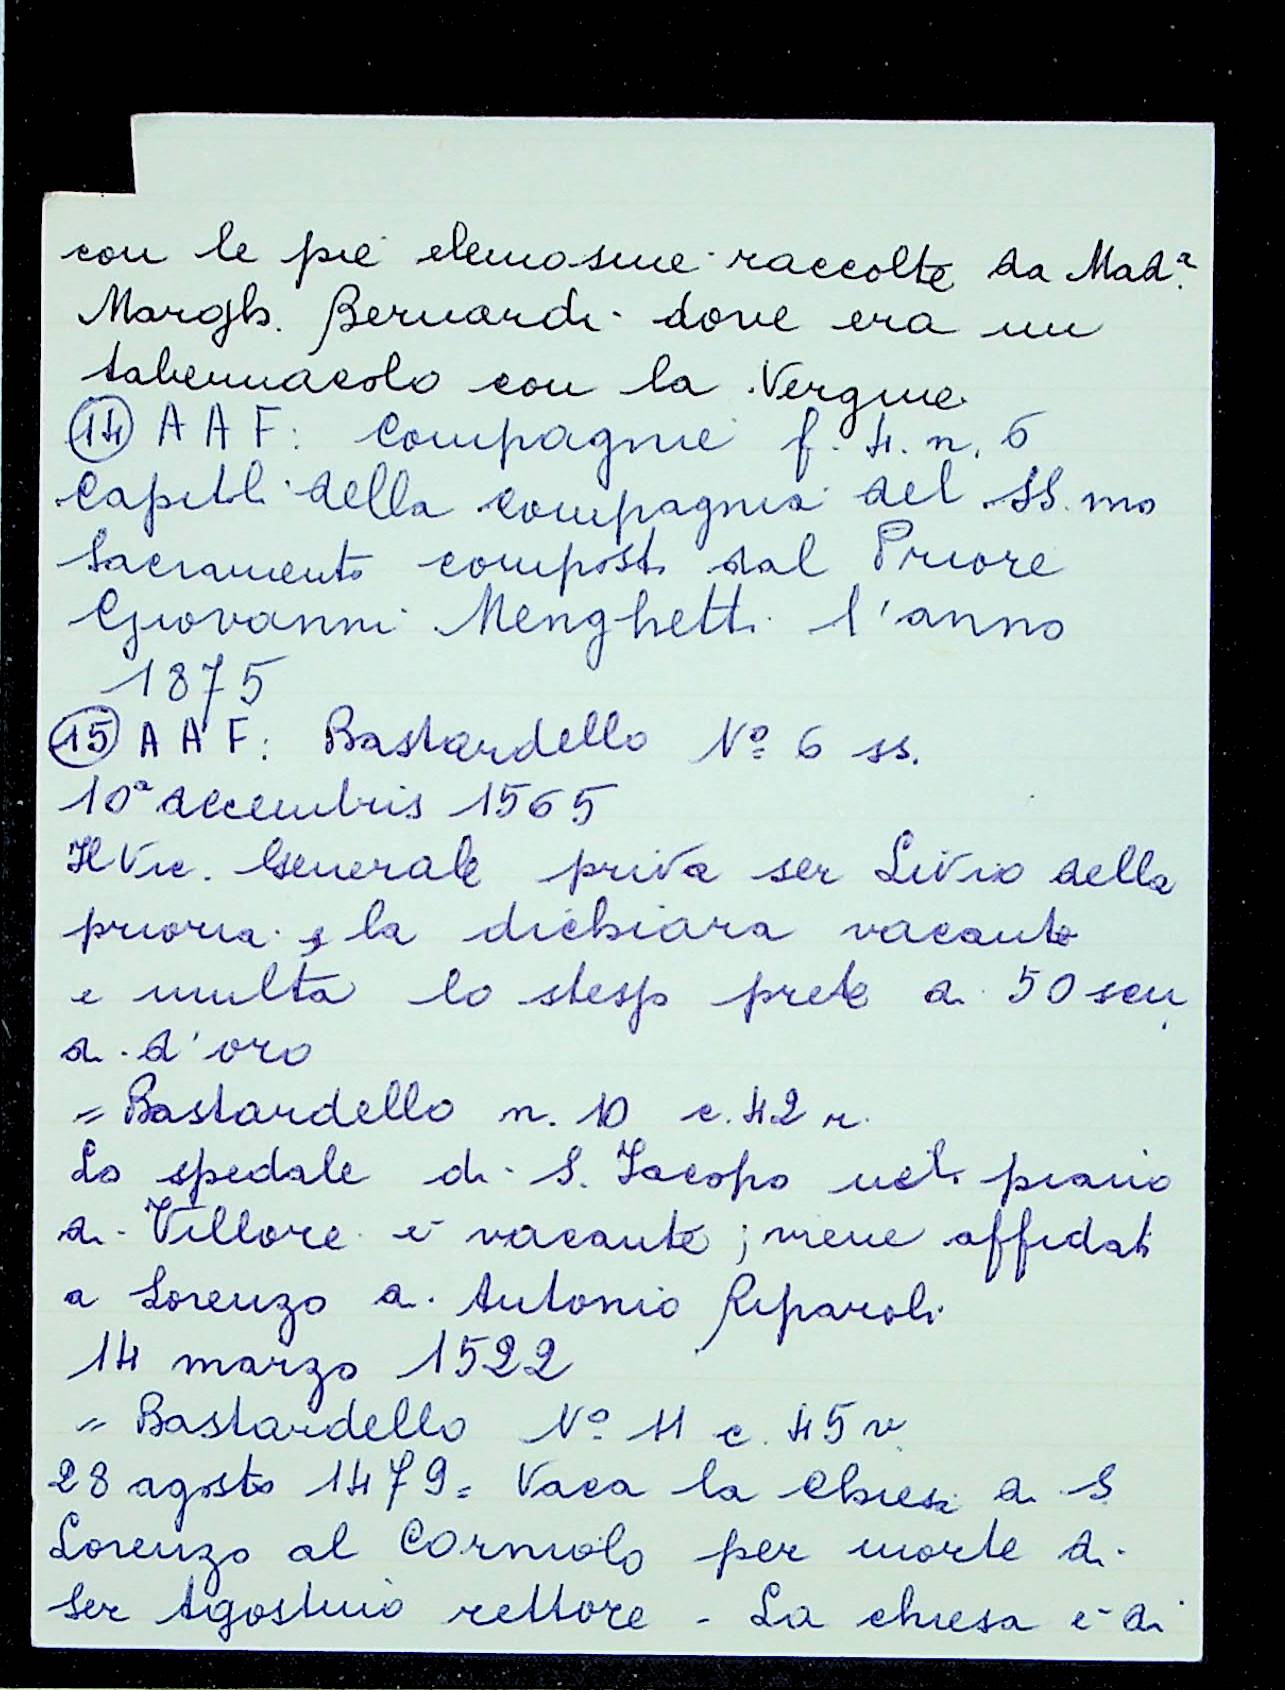 con le pie elemosine raccolte da Mad.ª
Margh. Bernardi dove era un
tabernacolo con la Vergine
(14) A A F: Compagnie f. 4. n. 6
Capitoli della Compagnia del SS.mo
Sacramento composti dal Priore
Giovanni Menghetti l'anno
1875
(15) A A F: Bastardello Nº 6 ss.
10ª decembris 1565
Il Vic. Generale priva ser Livio della
prioria e la dichiara vacante
e multa lo stesso prete di 50 scu
di d'oro
= Bastardello n. 10 c. 42 r.
Lo spedale di S. Jacopo nel piano
di Villore è vacante; viene affidato
a Lorenzo di Antonio Riparoli
14 marzo 1522
= Bastardello Nº 11 c. 45 v
28 agosto 1479 = Vaca la Chiesa di S
Lorenzo al Corniolo per morte di
Ser Agostino rettore - La chiesa è di